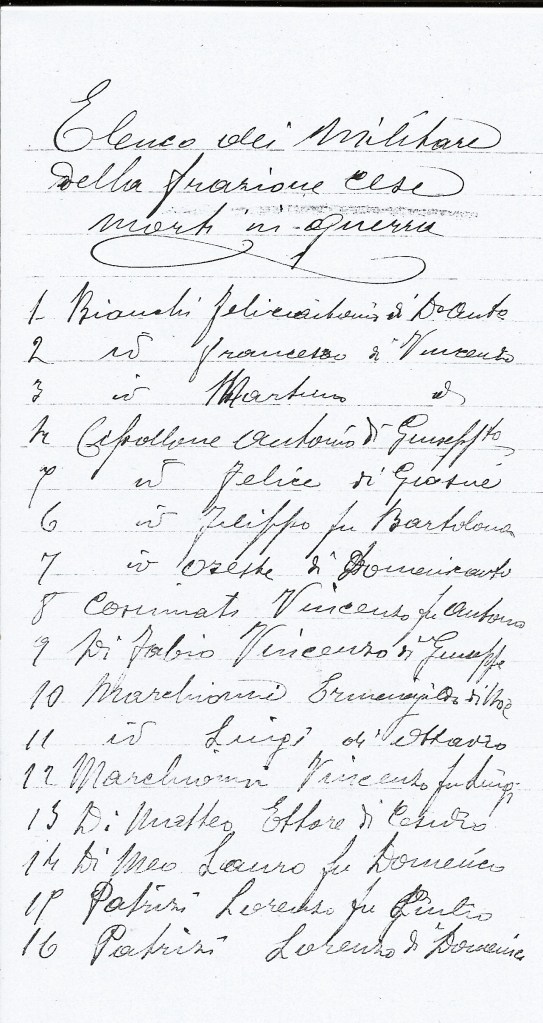 Elenco dei Militare
della frazione Cese
morti in guerra
1 Bianchi Feliciantonio di Dcanto
2 id Francesco di Vincenzo
3 id Martino d
4 Cipollone Antonio di Giuseppto
5 id Felice di Giosuè
6 id Filippo fu Bartolomeo
7 id Oreste di Domenicanto
8 Cosimati Vincenzo fu Antonio
9 Di Fabio Vincenzo di Giuseppe
10 Marchionni Ermenegildo di
11 id Luigi di Ottavio
12 Marchionni Vincenzo fu Luigi
13 Di Matteo Ettore di Cesidio
14 Di Meo Lauro fu Domenico
15 Patrizi Lorenzo fu
16 Patrizi Lorenzo di Domenico